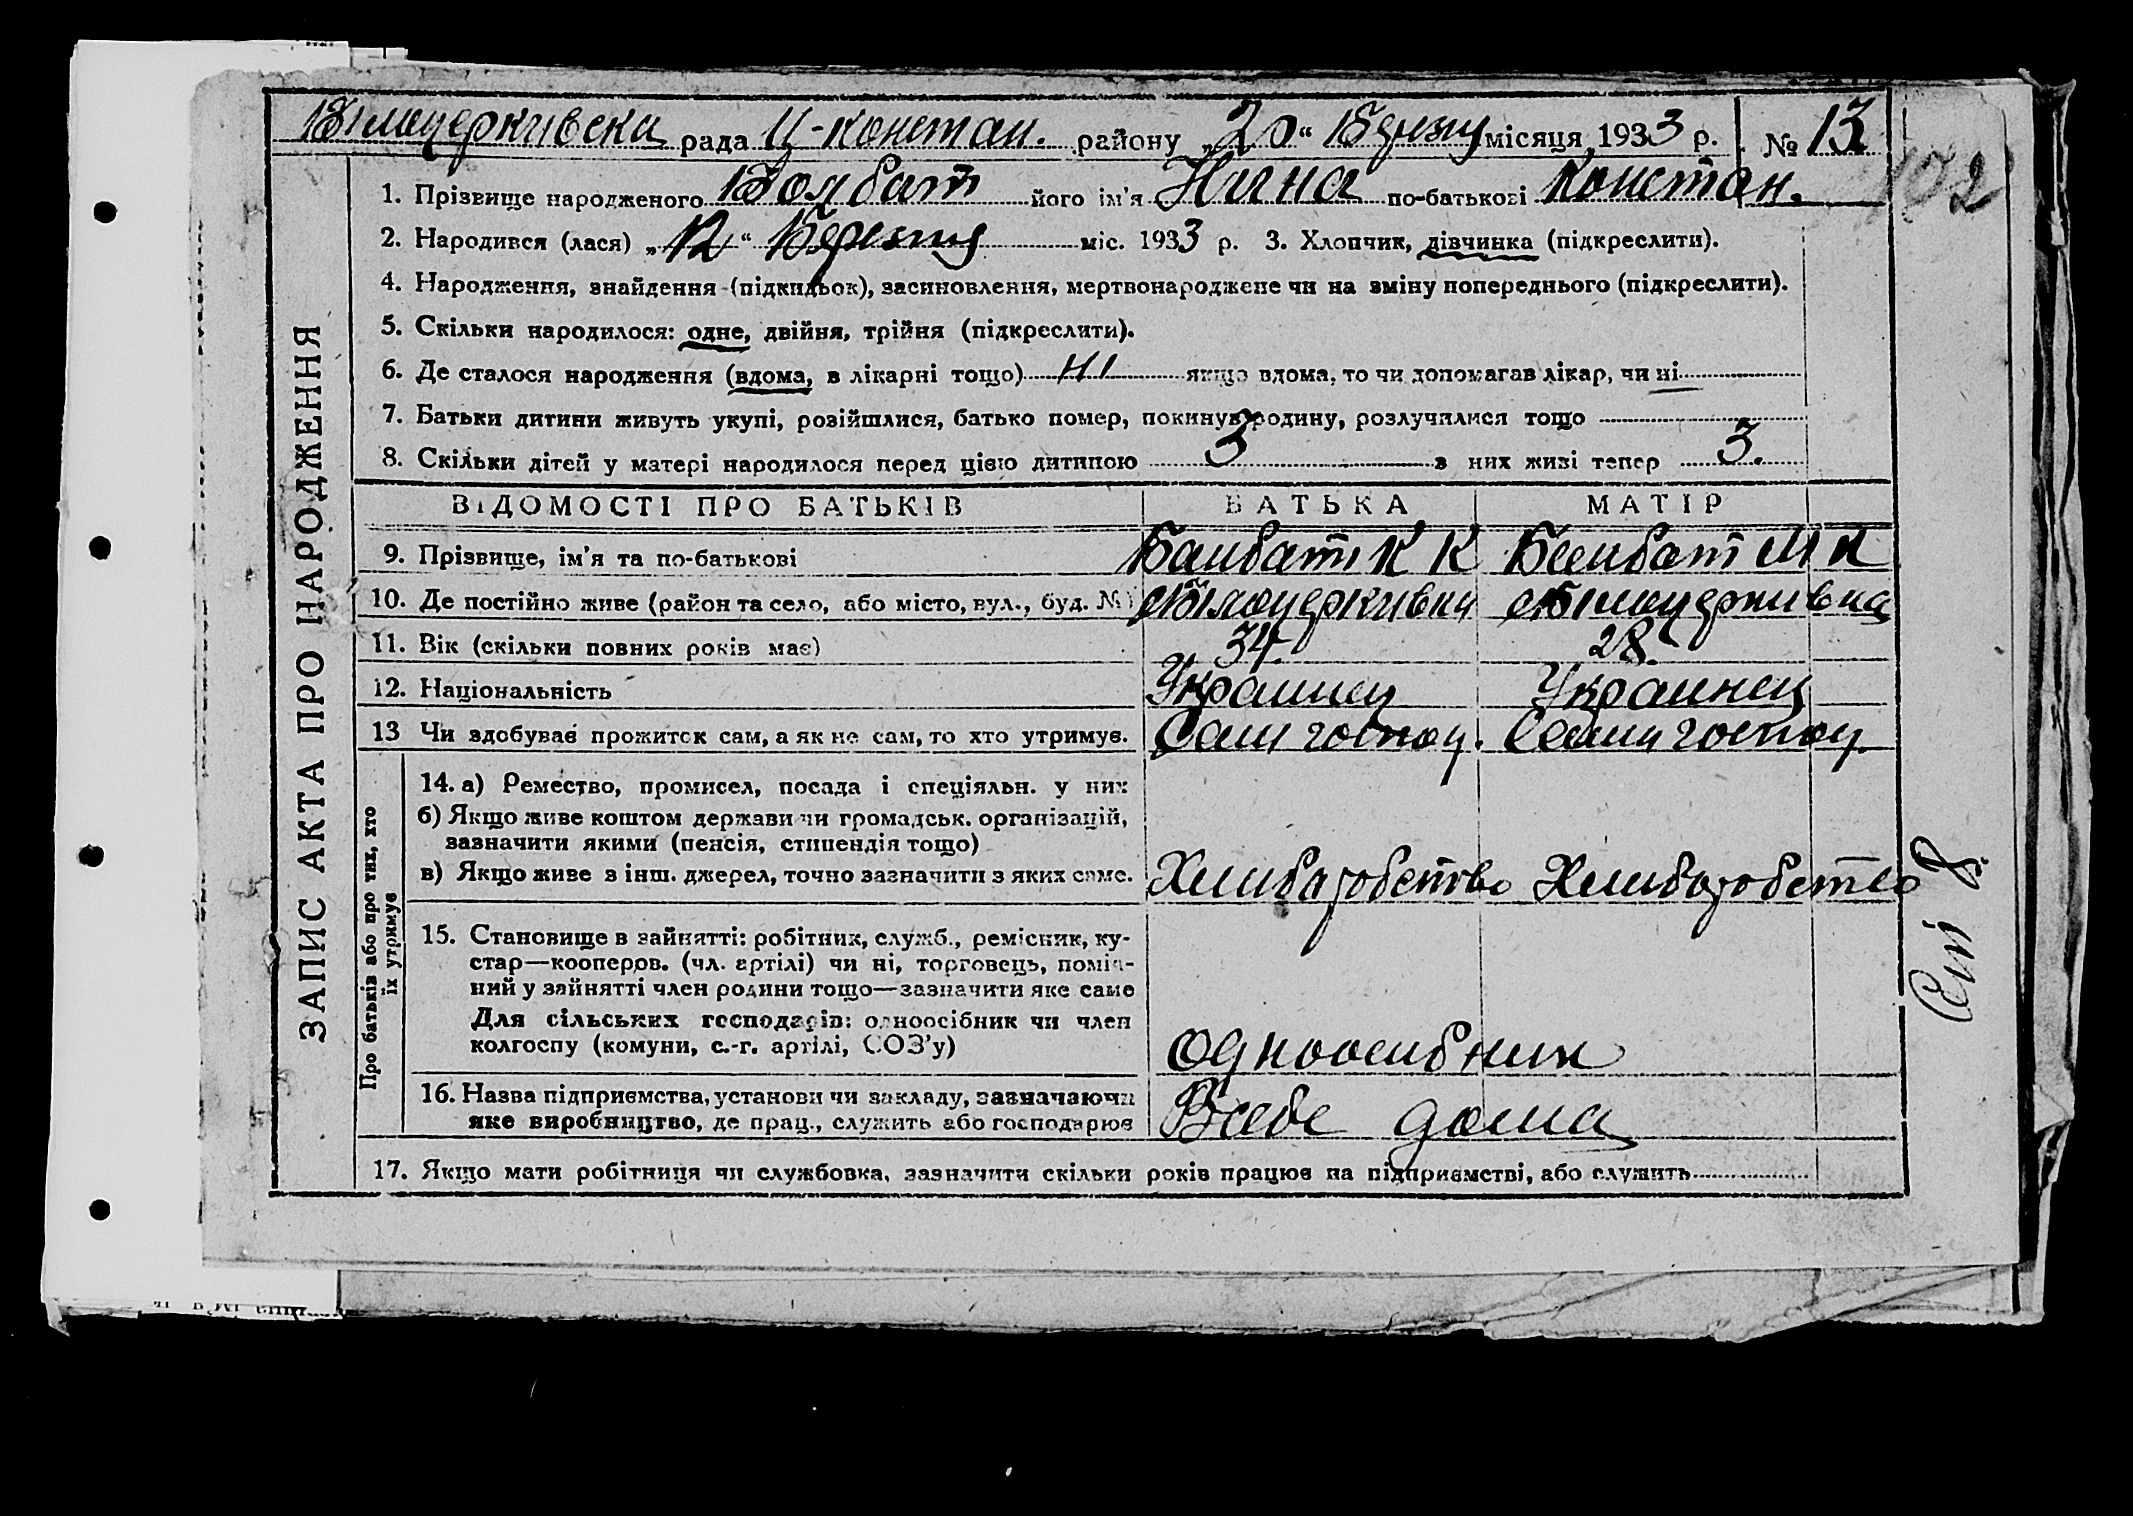 Білоцерківска рада Ц-констан. району „20“ Березня місяця 1933 р. № 13
102
ЗАПИС АКТА ПРО НАРОДЖЕННЯ
1. Прізвище народженого його ім'я Нина по-батькові Констан.
2. Народився (лася) „12“ Березня міс. 1933 р. 3. Хлопчик, дівчинка (підкреслити).
4. Народження, знайдення (підкидьок), засиновлення, мертвонароджене чи на зміну попереднього (підкреслити).
5. Скільки народилося: одне, двійня, трійня (підкреслити).
6. Де сталося народження (вдома, в лікарні тощо) ні якщо вдома, то чи допомагав лікар, чи ні
7. Батьки дитини живуть укупі, розійшлися, батько помер, покинув родину, розлучилися тощо
8. Скільки дітей у матері народилося перед цією дитиною 3 з них живі тепер 3.
ВІДОМОСТІ ПРО БАТЬКІВ БАТЬКА МАТІР
9. Прізвище, ім'я та по-батькові К К М К
10. Де постійно живе (район та село, або місто, вул., буд. №) с Білоцерківка с Білоцерківка
11. Вік (скільки повних років має) 34 28.
12. Національність Украинец Украинец
13 Чи здобуває прожиток сам, а як не сам, то хто утримує. Сам господ. Сами господ.
Про батьків або про тих, хто
їх утримує
14. а) Ремество, промисел, посада і спеціяльн. у них
б) Якщо живе коштом держави чи громадськ. організацій,
зазначити якими (пенсія, стипендія тощо)
в) Якщо живе з інш. джерел, точно зазначити з яких саме. Хлиборобство Хлиборобство
15. Становище в зайнятті: робітник, служб., ремісник, ку-
стар—кооперов. (чл. артілі) чи ні, торговець, поміч-
ний у зайнятті член родини тощо—зазначити яке саме
Для сільських господарів: одноосібник чи член
колгоспу (комуни, с.-г. артілі, СОЗ'у) Одноосибник
16. Назва підприємства, установи чи закладу, зазначаючи
яке виробництво, де прац., служить або господарює Всебе дома
17. Якщо мати робітниця чи службовка, зазначити скільки років працює на підприємстві, або служить
Ст 8.